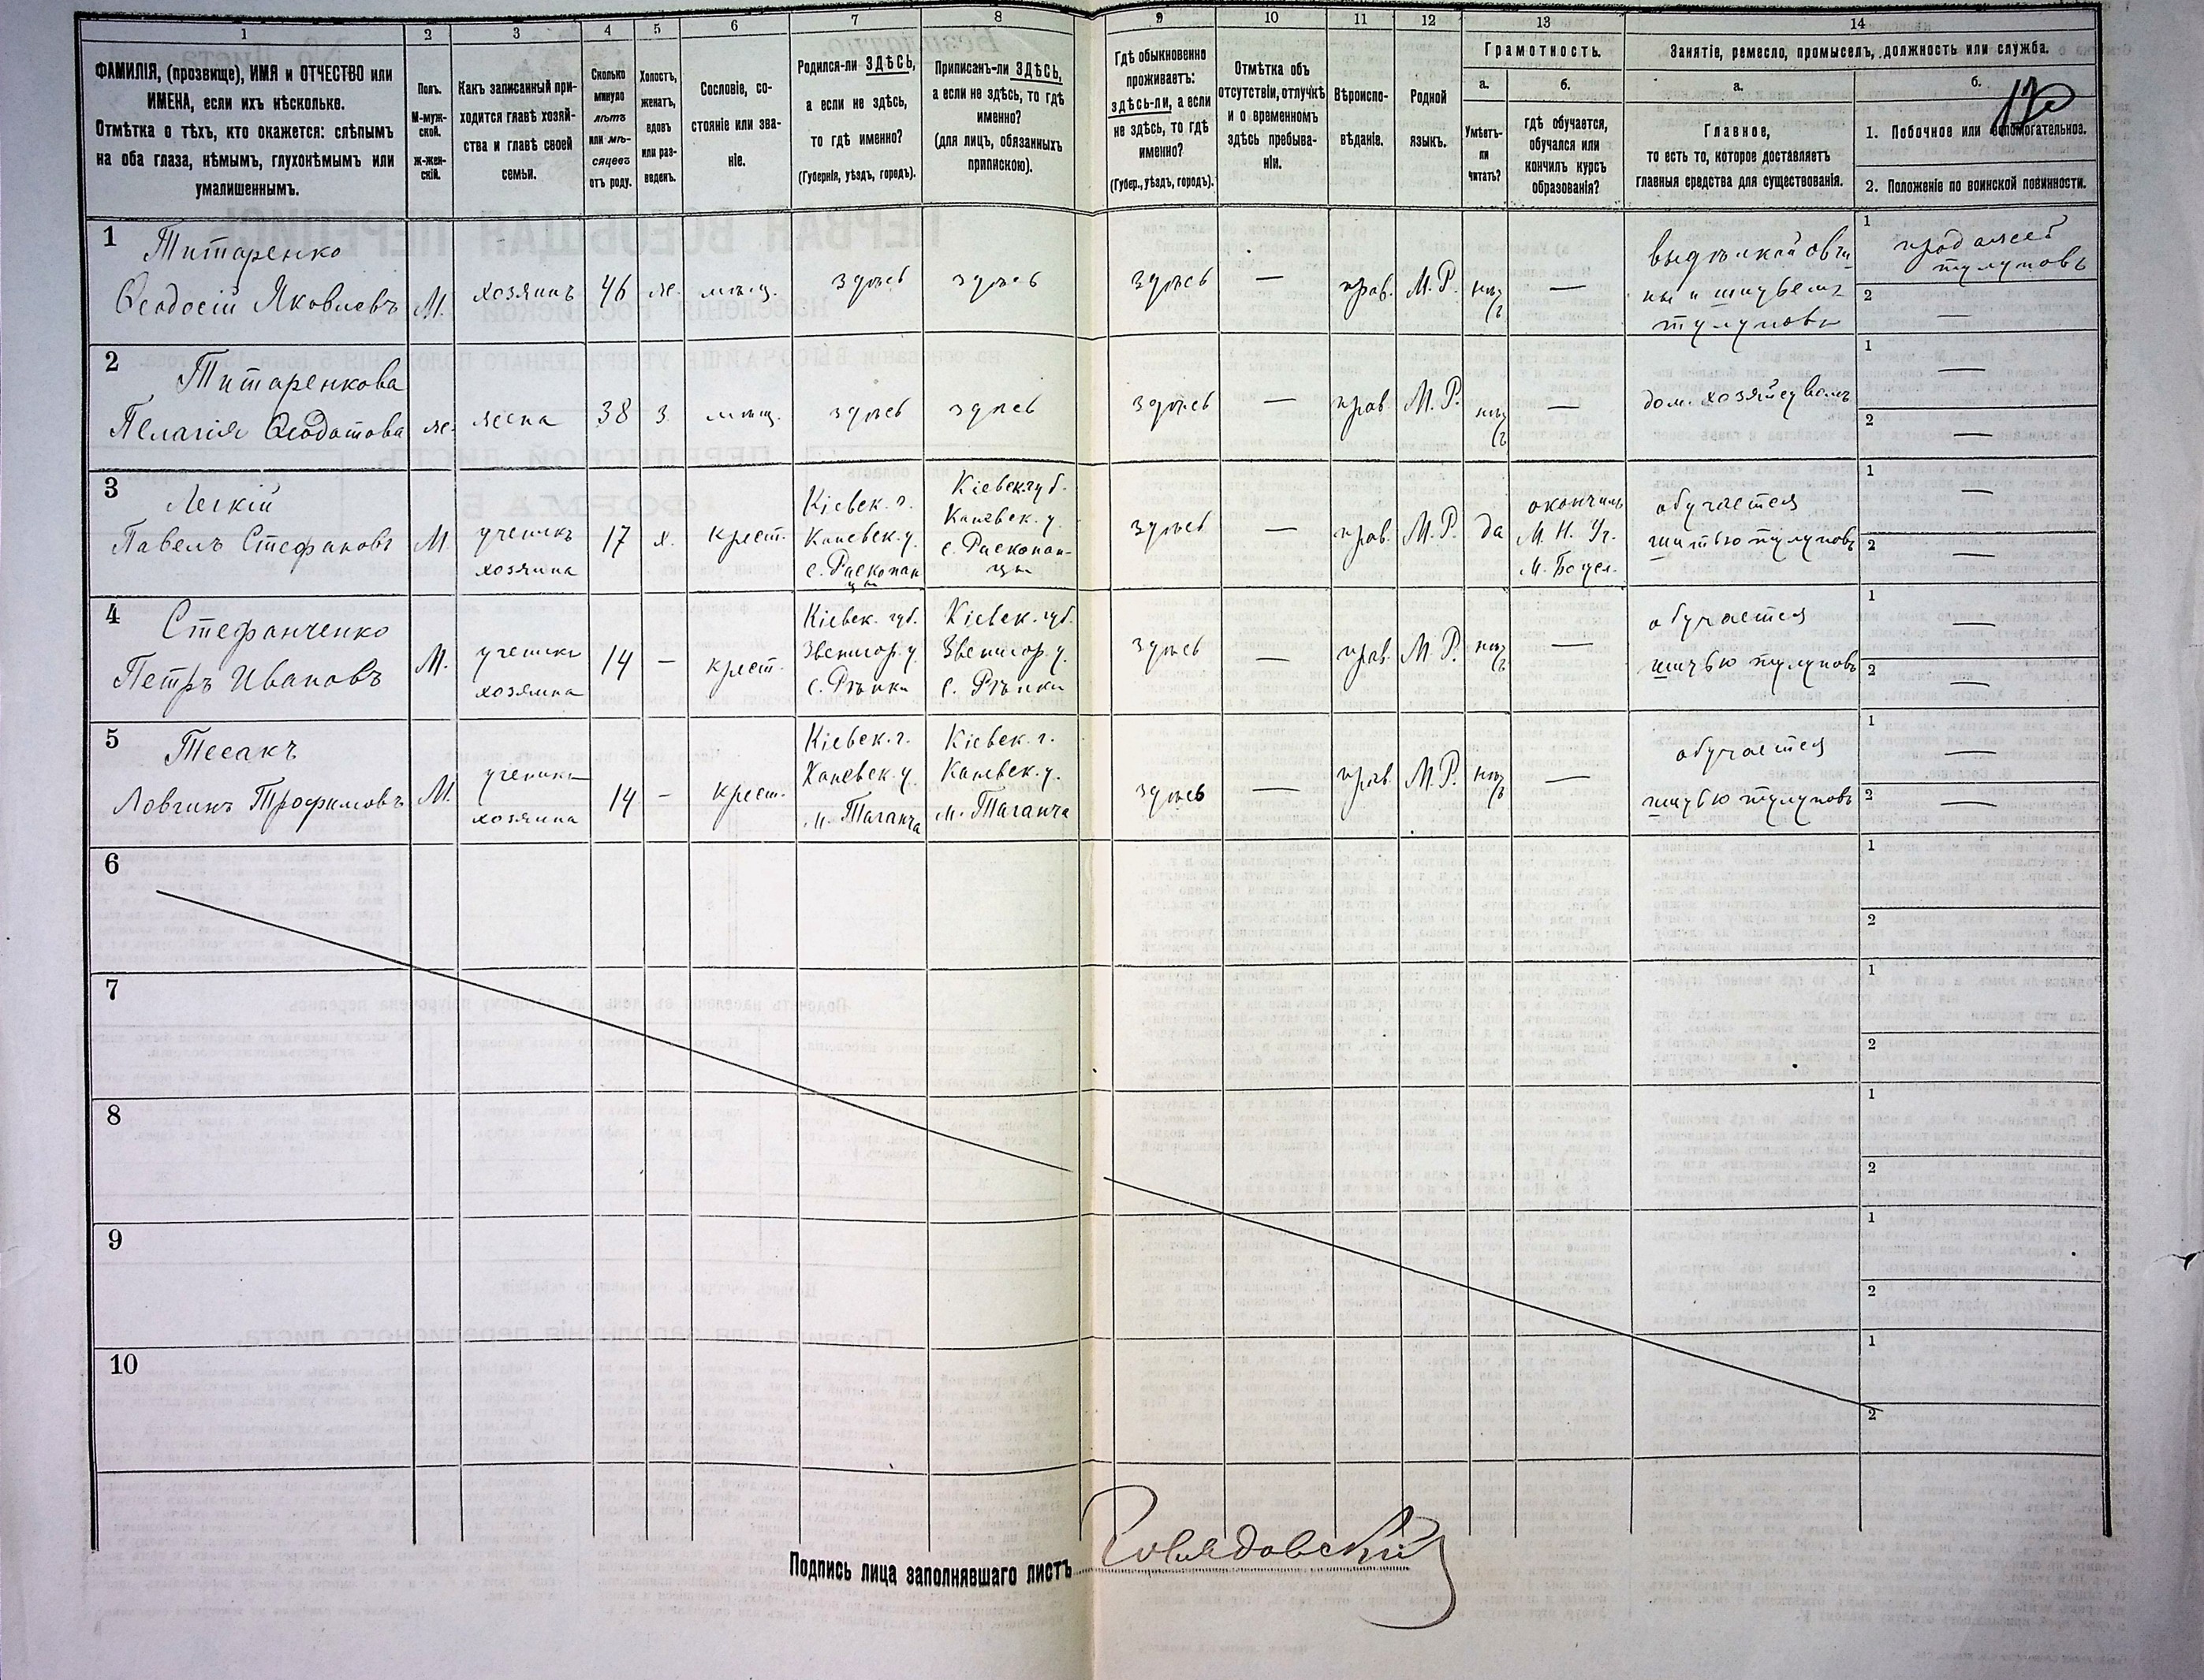 1 2 3 4 5 6 7 8 9 10 11 12 13 14
ФАМИЛІЯ, (прозвище), ИМЯ и ОТЧЕСТВО или
ИМЕНА, если ихъ нѣсколько.
Отмѣтка о тѣхъ, кто окажется: слѣпымъ
на оба глаза, нѣмымъ, глухонѣмымъ или
умалишеннымъ.
Полъ.
М-муж-
ской.
ж-жен-
скій.
Какъ записанный при-
ходится главѣ хозяй-
ства и главѣ своей
семьи.
Сколько
минуло
лѣтъ
или мѣ-
сяцевъ
отъ роду.
Холостъ,
женатъ,
вдовъ
или раз-
веденъ.
Сословіе, со-
стояніе или зва-
ніе.
Родился-ли ЗДѢСЬ,
а если не здѣсь,
то гдѣ именно?
(Губернія, уѣздъ, городъ).
Приписанъ-ли ЗДѢСЬ,
а если не здѣсь, то гдѣ
именно?
(для лицъ, обязанныхъ
припискою).
Гдѣ обыкновенно
проживаетъ:
здѣсь-ли, а если
не здѣсь, то гдѣ
именно?
(Губер., уѣздъ, городъ).
Отмѣтка объ
отсутствіи, отлучкѣ
и о временномъ
здѣсь пребыва-
ніи.
Вѣроиспо-
вѣданіе.
Родной
языкъ.
Грамотность.
а.
Умѣетъ-
ли
читать?
б.
гдѣ обучается,
обучался или
кончилъ курсъ
образованія?
Занятіе, ремесло, промыселъ, должность или служба.
а.
Главное,
то есть то, которое доставляетъ
главныя средства для существованія.
б.
1. Побочное или вспомогательное.
2. Положеніе по воинской повинности.
1 Титаренко
Ѳеодосій Яковлевъ М. хозяинъ 46 ж. мѣщ. здѣсь здѣсь здѣсь — прав. М.Р. нѣтъ —
выдѣлкой овчи-
ны и шитьемъ
тулуповъ
1 продажей
тулуповъ
2 —
2 Титаренкова
Пелагія Ѳеодотова ж. жена 38 з. мѣщ. здѣсь здѣсь здѣсь — прав. М.Р. нѣтъ —
дом. хозяйствомъ
1 —
2 —
3 Легкій
Павелъ Стефановъ М. ученикъ
хозяина
17 х. крест.
Кіевск. г.
Каневск. у.
с. Раскопан
цы
Кіевск. губ.
Каневск. у.
с. Раскопан-
цы
здѣсь — прав. М.Р. да
окончилъ
М. Н. Уч.
обучается
шитью тулуповъ
1 —
2 —
4 Стефанченко
Петръ Ивановъ М. ученикъ
хозяина
14 — крест.
Кіевск. губ.
Звенигор. у.
с. Рѣпки
Кіевск. губ.
Звенигор. у.
с. Рѣпки
здѣсь — прав. М.Р. нѣтъ —
обучается
шитью тулуповъ
1 —
2 —
5 Тесакъ
Логгинъ Трофимовъ М. ученикъ
хозяина
14 — крест.
Кіевск. г.
Каневск. у.
м. Таганча
Кіевск. г.
Каневск. у.
м. Таганча
здѣсь — прав. М.Р. нѣтъ —
обучается
шитью тулуповъ
1 —
2 —
6 1
2
7 1
2
8 1
2
9 1
2
10 1
2
Подпись лица заполнявшаго листъ